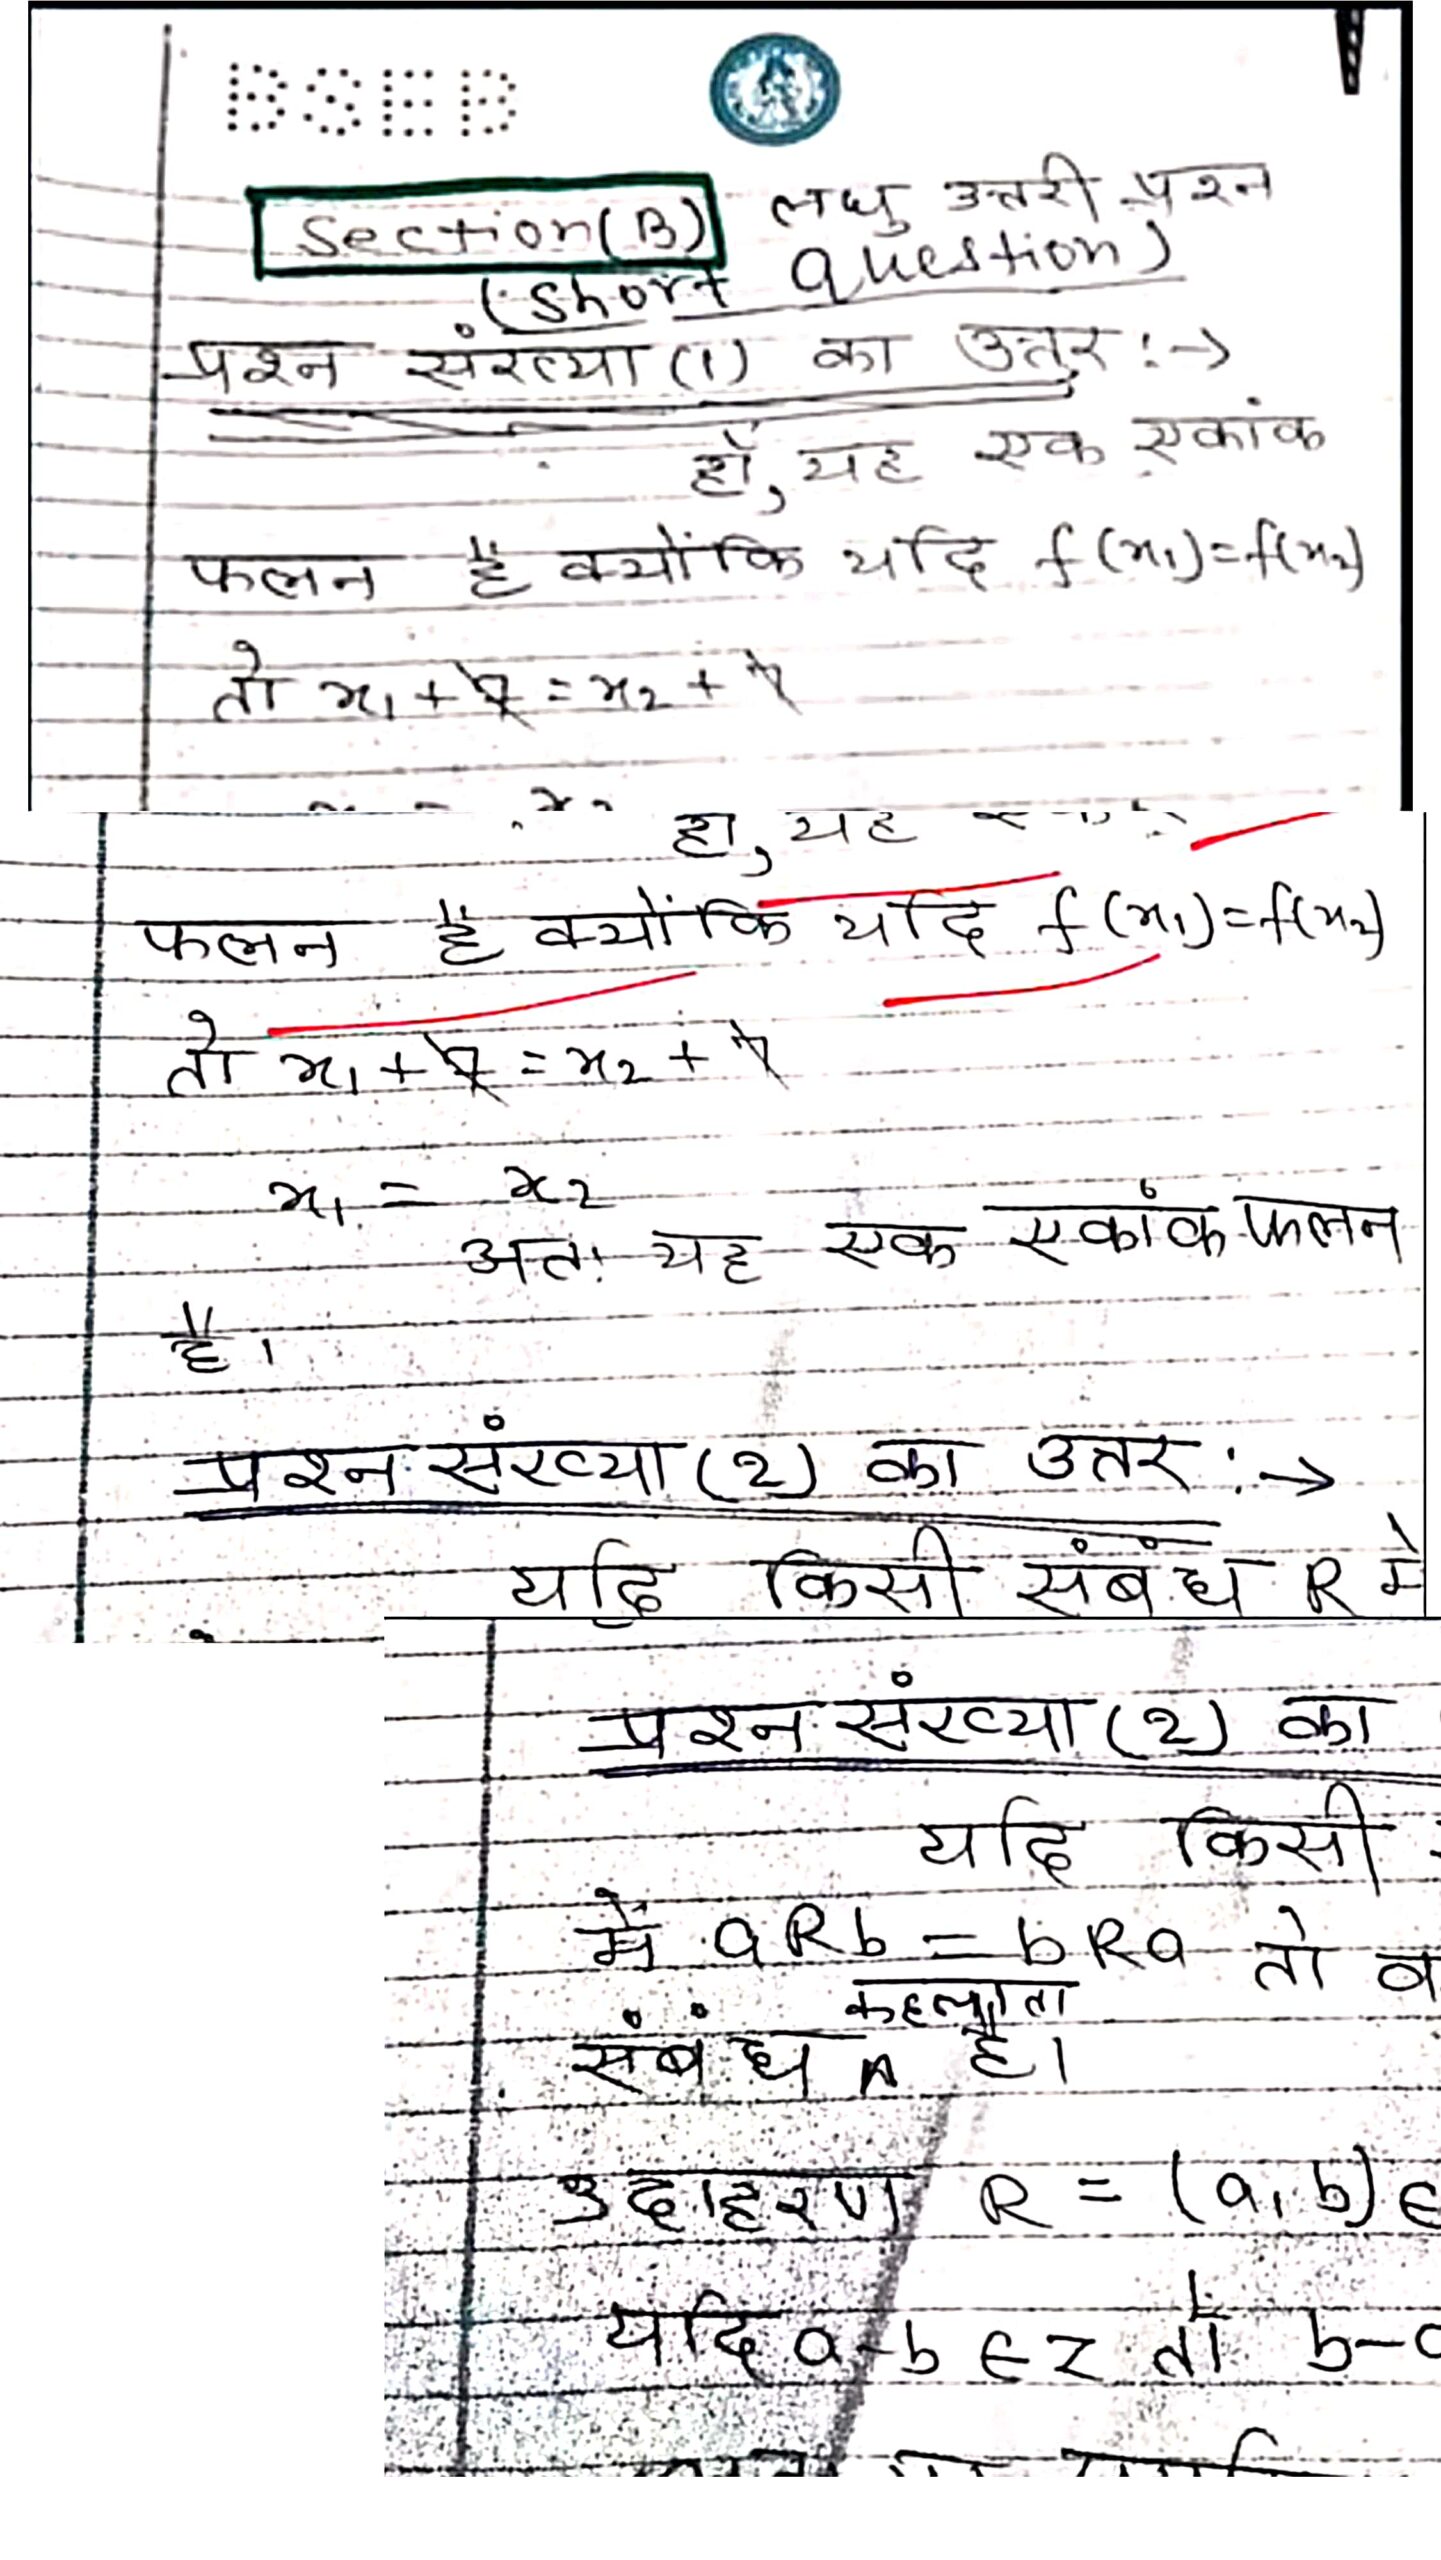 BSEB
Section(B) लघु उत्तरी प्रश्न
(Short Question)
प्रश्न संख्या (1) का उत्तर :→
हाँ, यह एक एकांक
फलन है क्योंकि यदि f(x₁)=f(x₂)
तो x₁ + 7 = x₂ + 7
हा, यह
फलन है क्योंकि यदि f(x₁)=f(x₂)
तो x₁ + 7 = x₂ + 7
x₁ = x₂
अतः यह एक एकांक फलन
है।
प्रश्न संख्या (2) का उत्तर :→
यदि किसी संबंध R मे
प्रश्न संख्या (2) का
यदि किसी
में aRb = bRa तो
कहलाता
संबंध ^ है।
उदाहरण R = (a, b) ∈
यदि a-b ∈ z तो b-